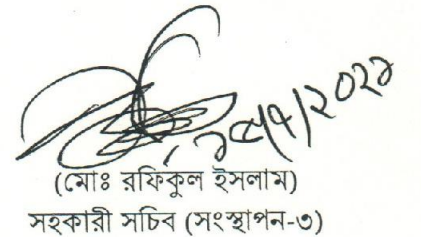 (মোঃ রফিকুল ইসলাম)
সহকারী সচিব (সংস্থাপন-৩)